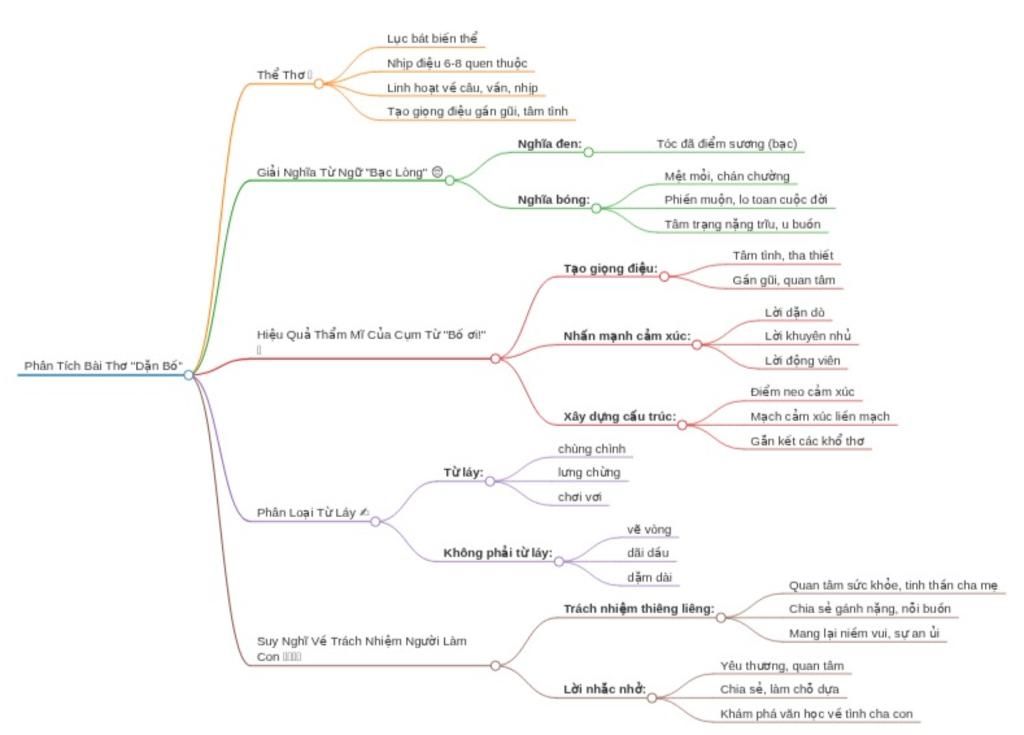 Phân Tích Bài Thơ "Dặn Bố"
Thể Thơ
Lục bát biến thể
Nhịp điệu 6-8 quen thuộc
Linh hoạt về câu, vần, nhịp
Tạo giọng điệu gần gũi, tâm tình
Giải Nghĩa Từ Ngữ "Bạc Lòng" 😔
Nghĩa đen:
Tóc đã điểm sương (bạc)
Nghĩa bóng:
Mệt mỏi, chán chường
Phiền muộn, lo toan cuộc đời
Tâm trạng nặng trĩu, u buồn
Hiệu Quả Thẩm Mĩ Của Cụm Từ "Bố ơi!"
Tạo giọng điệu:
Tâm tình, tha thiết
Gần gũi, quan tâm
Nhấn mạnh cảm xúc:
Lời dặn dò
Lời khuyên nhủ
Lời động viên
Xây dựng cấu trúc:
Điểm neo cảm xúc
Mạch cảm xúc liền mạch
Gắn kết các khổ thơ
Phân Loại Từ Láy ✍
Từ láy:
chùng chình
lưng chừng
chơi vơi
Không phải từ láy:
vẽ vòng
dãi dầu
dặm dài
Suy Nghĩ Về Trách Nhiệm Người Làm
Con
Trách nhiệm thiêng liêng:
Quan tâm sức khỏe, tinh thần cha mẹ
Chia sẻ gánh nặng, nỗi buồn
Mang lại niềm vui, sự an ủi
Lời nhắc nhở:
Yêu thương, quan tâm
Chia sẻ, làm chỗ dựa
Khám phá văn học về tình cha con